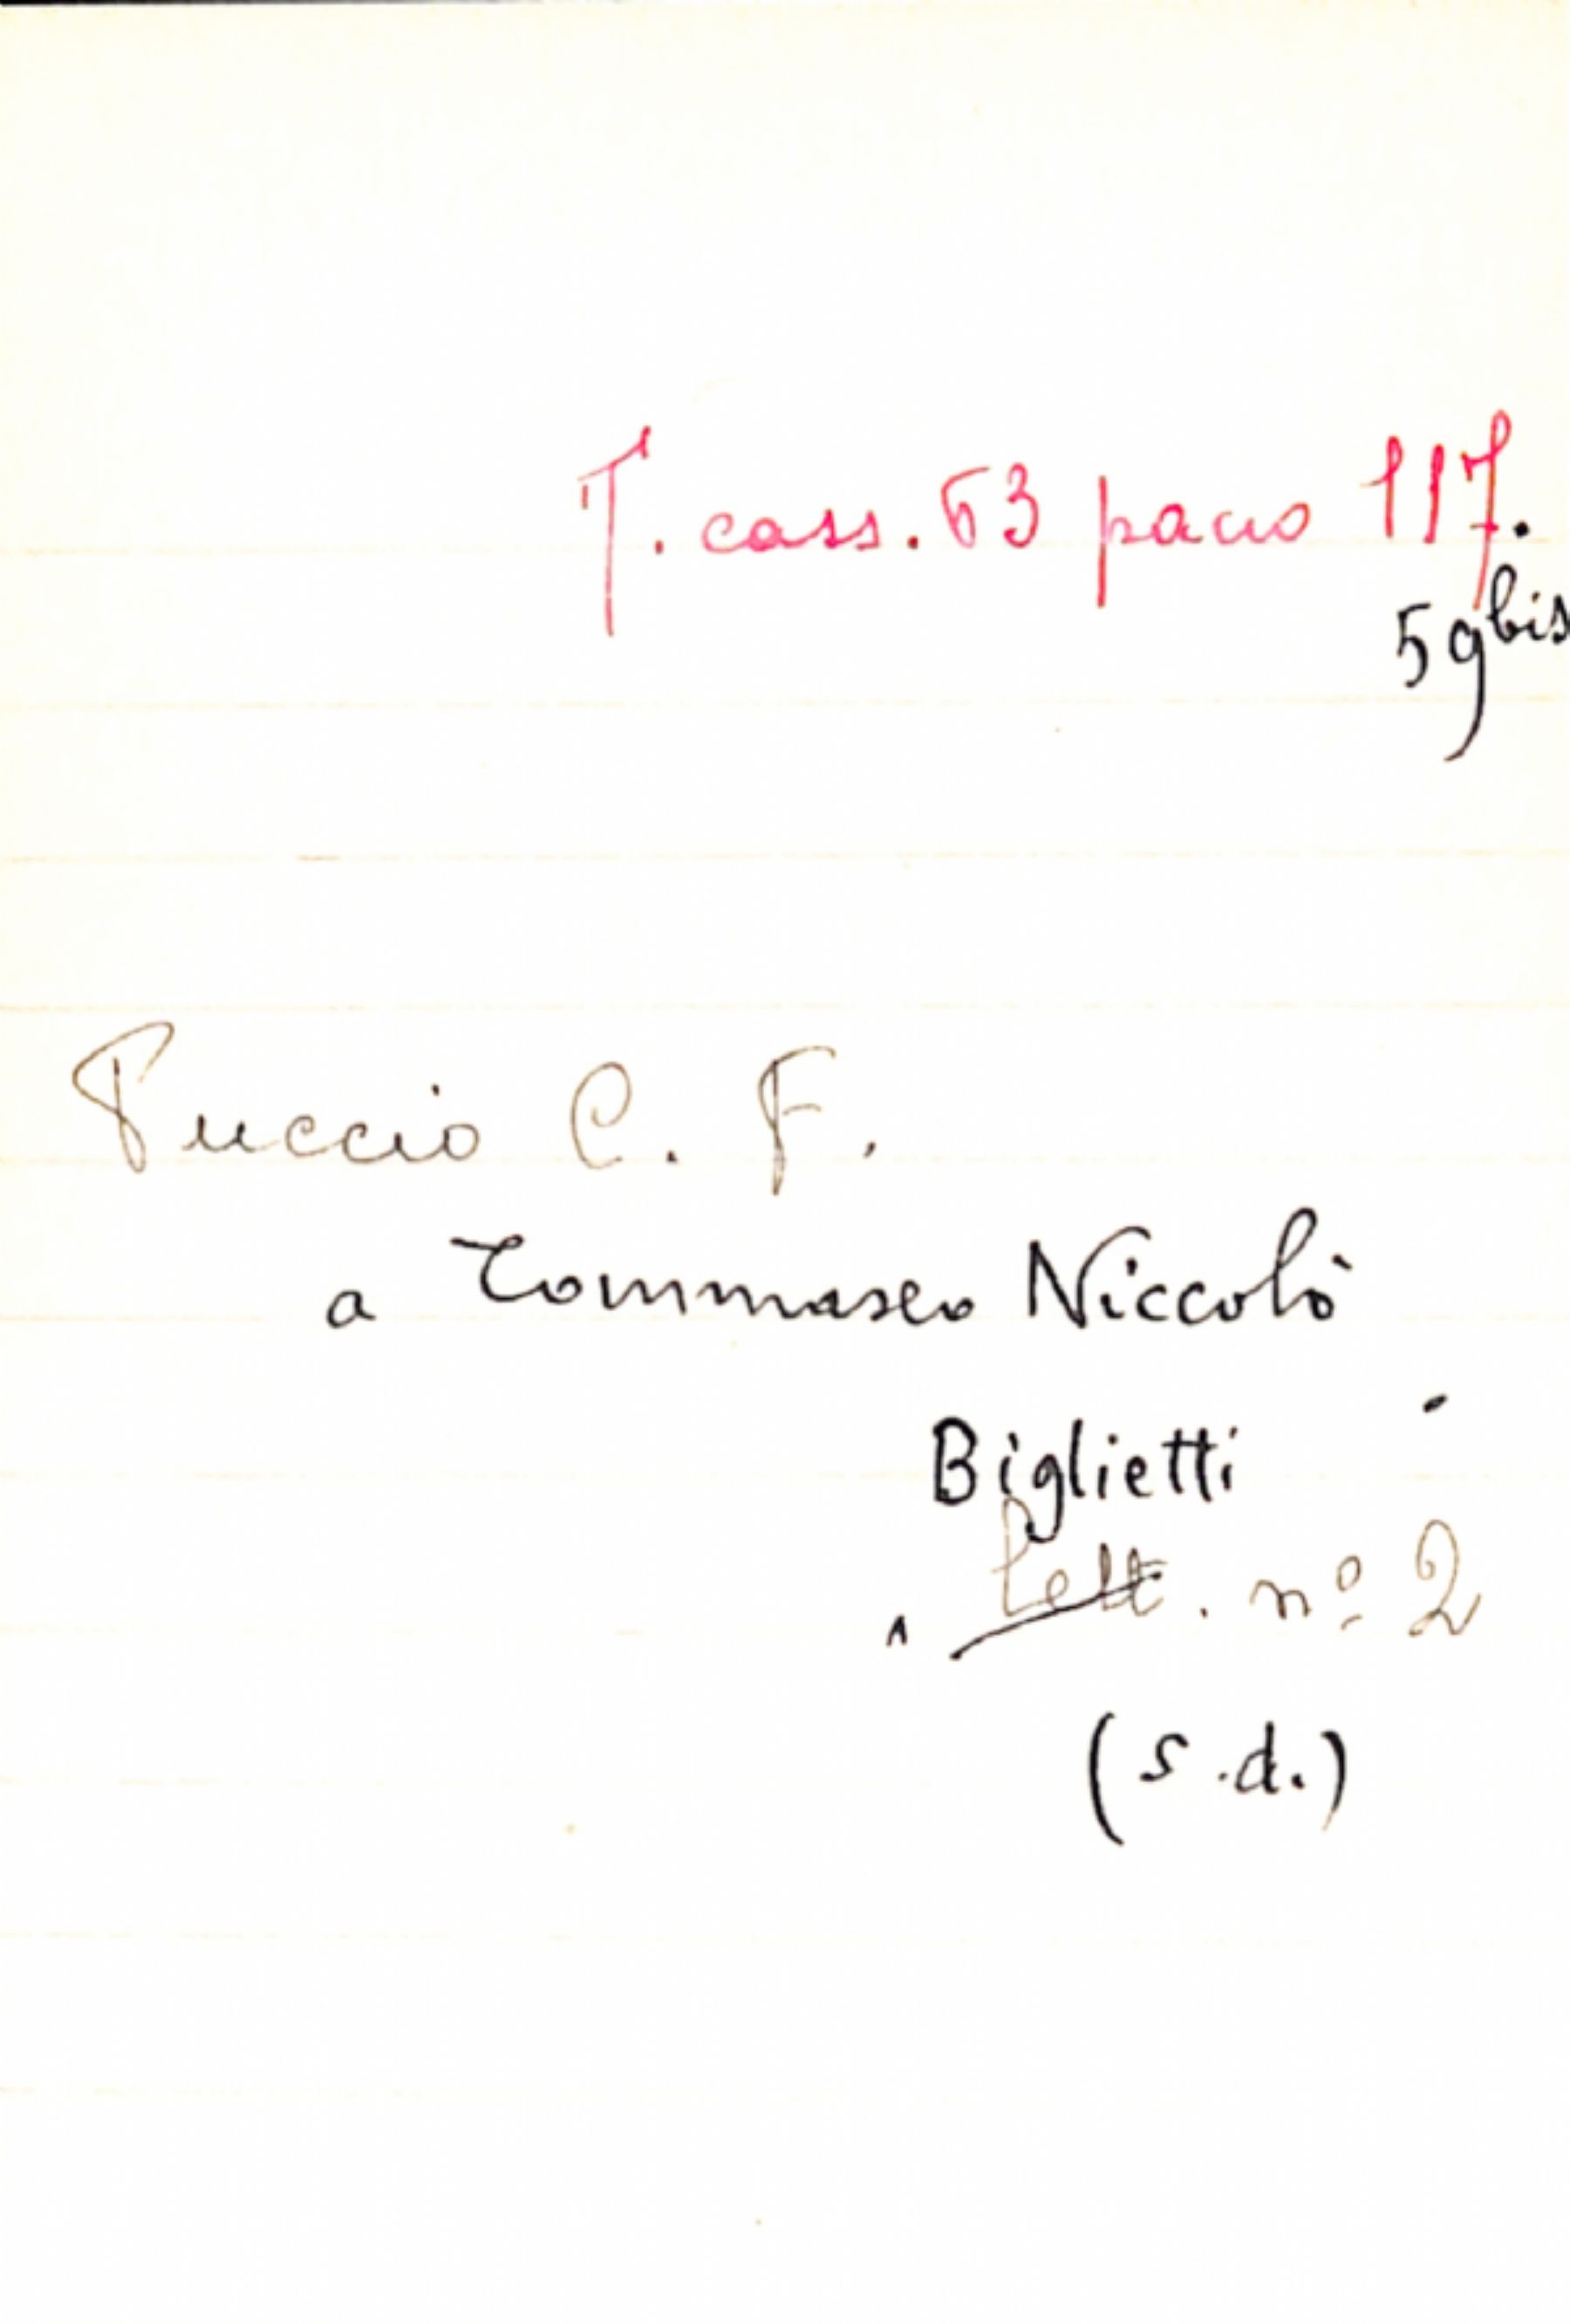 T. cass. 63 pacco 117.
59 bis
Puccio C. F.
a Tommaseo Niccolò
Biglietti
Lett. nº 2
(s.d.)